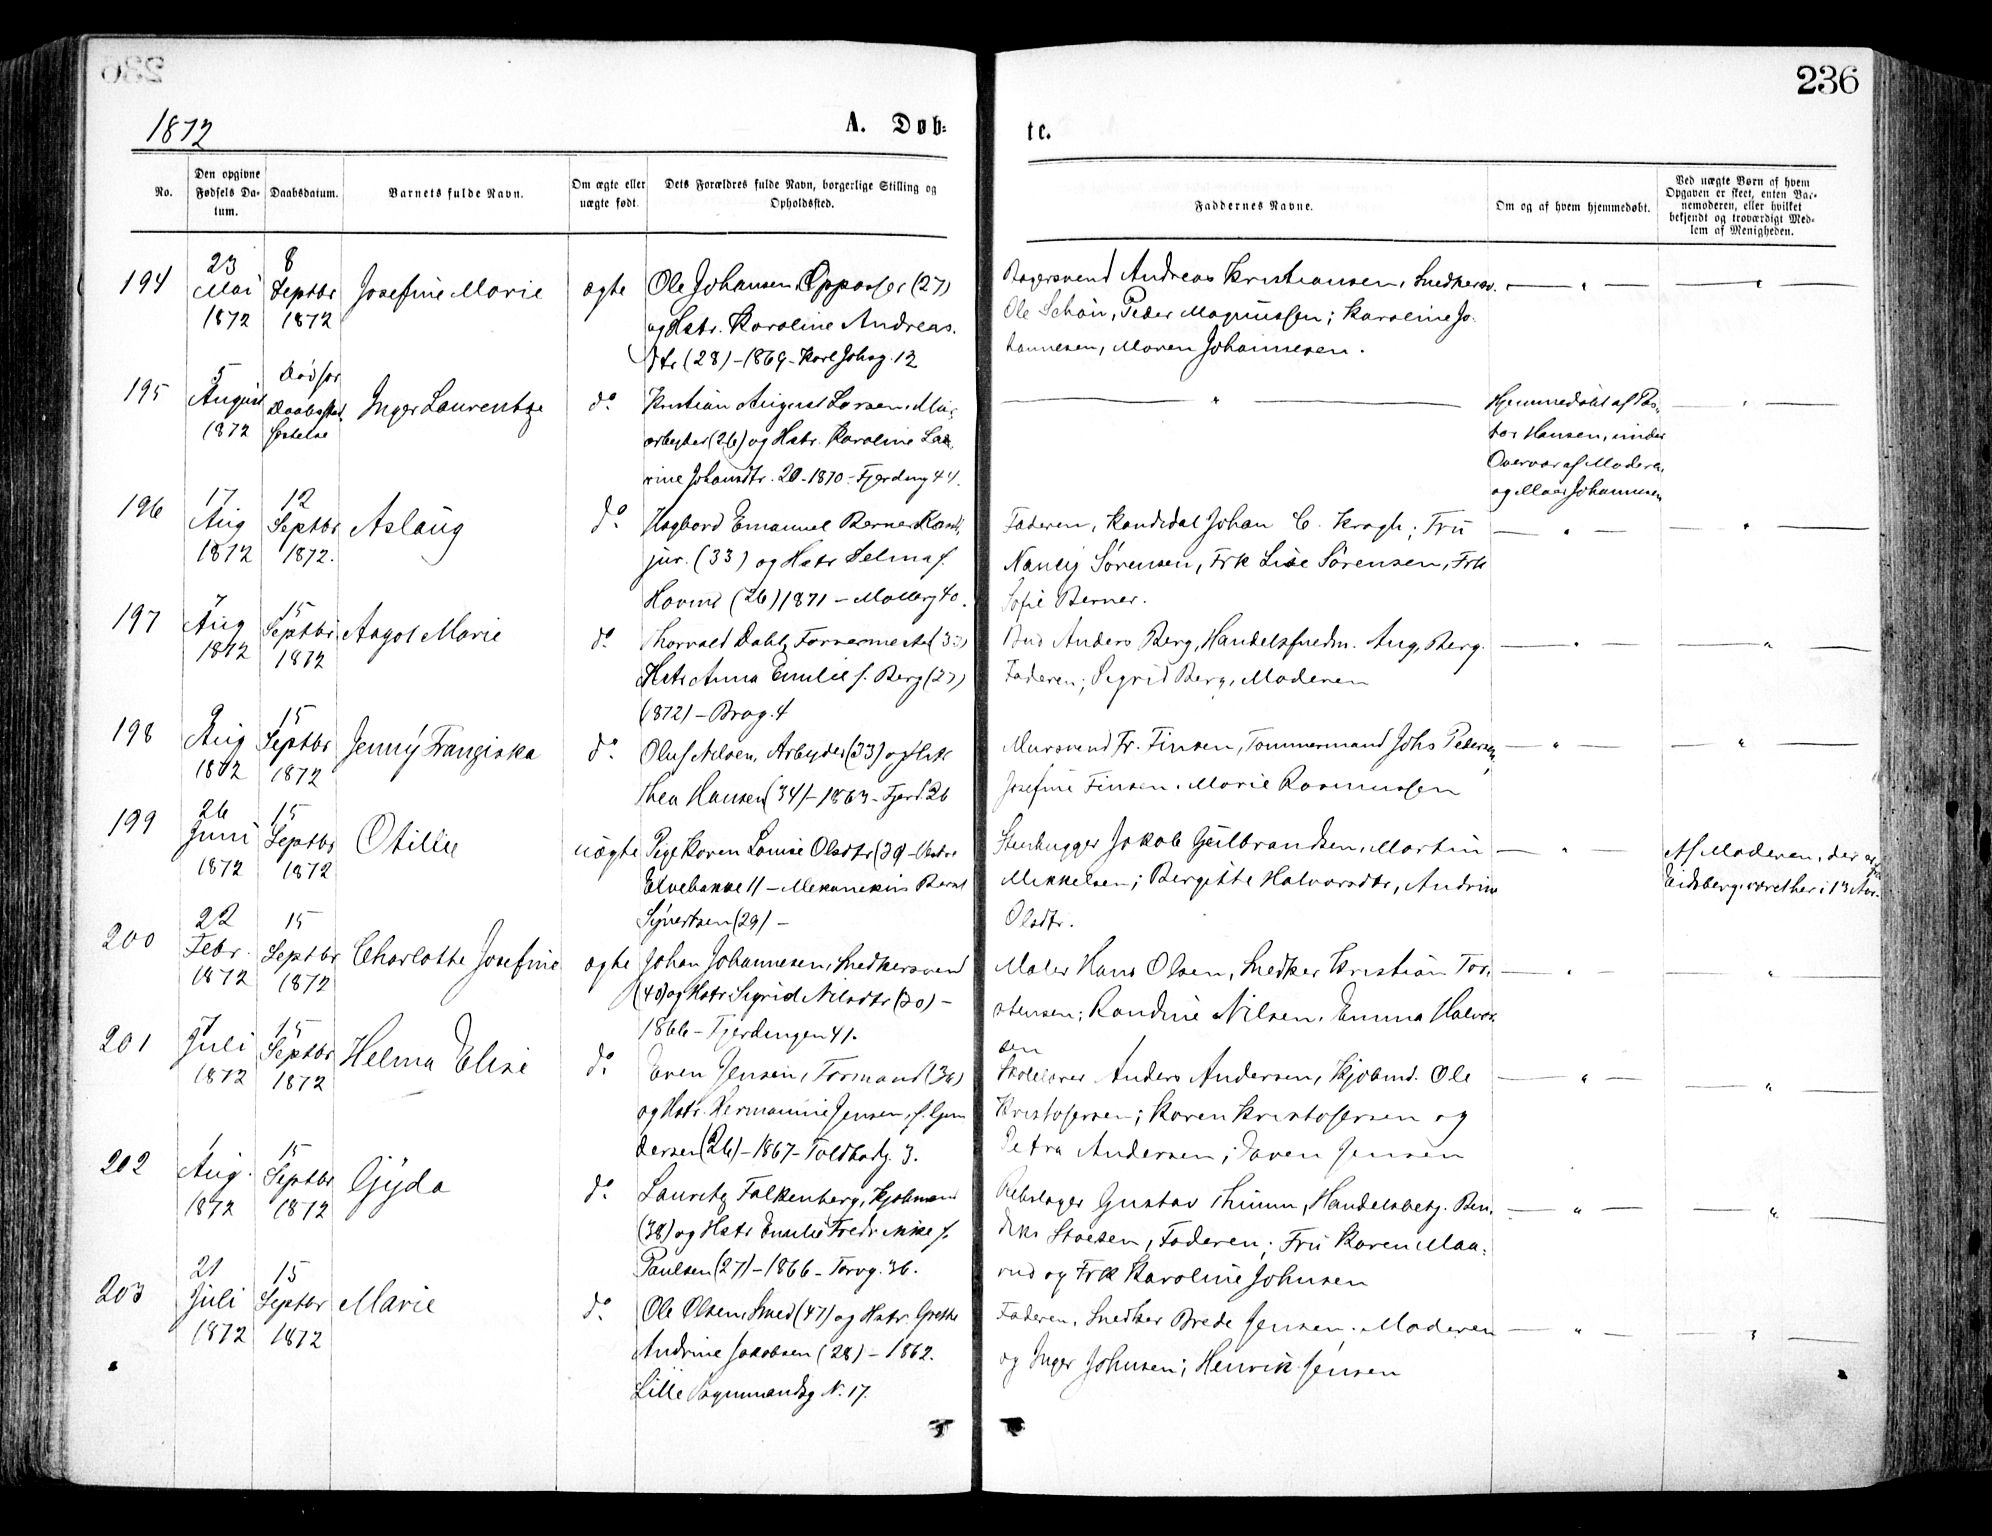 236
1872
A. Døb-
te.
No.
Den opgivne Fødsels Da-
tum.
Daabsdatum.
Barnets fulde Navn.
Om ægte eller
uægte født.
Dets Forældres fulde Navn, borgerlige Stilling og
Opholdssted.
Faddernes Navne.
Om og af hvem hjemmedøbt.
Ved uægte Børn af hvem
Opgaven er skeet, enten Bar-
nemoderen, eller hvilket
bekjendt og troværdigt Med-
lem af Menigheden.
194
23 Mai 1872
8 Septbr 1872
Josefine Marie
ægte
Ole Johansen (27)
og Hstr. Karoline Andreas.
dtr (28) - 1869 - Karl Johsg. 12
Bagersvend Andreas Kristiansen, Snedkersv.
Ole Schøn, Peder Magnussen; Karoline Jo-
hannesen, Maren Johannesen.
195
5 August 1872
Død før
Inger Laurentze
do.
Kristian August Larsen, Mur-
arbeyder (26) og Hstr. Karoline Lau-
rine Johansdtr. 20 - 1870 - Fjerding 44.
Hjemmedøbt af Pas-
tor Hansen, under
Overvær af Moderen
og Johannesen
196
17 Aug 1872
12 Septbr 1872.
Aslaug
do.
Hagbard Emanuel Berner Kand.
jur. (33) og Hstr Selma f.
(26) 1871 - Møllerg 40.
Faderen, Kandidat Johan C. Krogh; Fru
Nancy Sørensen, Frk Lise Sørensen, Frk
Sofie Berner.
197
7 Aug 1872
15 Septbr 1872
Aagot Marie
do.
Thorvald Dahl, Farvermester
Hstr Anna Emilie f. Berg (27)
(1872) - Brog. 4
Bud Anders Berg, Handelsfuldm. Aug. Berg.
Faderen; Sigrid Berg, Moderen
198
9 Aug 1872
15 Septbr 1872
Jenny Franziska
do.
Oluf Nilsen, Arbeyder (33) og Hstr
Thea Hansen (34) - 1863 - Fjerd 26
Mursvend Fr. Finsen, Tømmermand Johs Pedersen,
Josefine Finsen. Marie Rasmussen
199
26 Juni 1872
15 Septbr 1872
Otilie
uægte
Pige Karen Louise Olsdtr - Vestre
Elvebakke 11 - Mekanikus Bernt
Syvertsen (29) -
Stenhugger Jakob Gulbrandsen, Martin
Mikkelsen; Bergitte Halvorsdtr, Andrine
Olsdtr.
Af Moderen, der er fra
Eidsberg, været her i 13 Aar.
200
22 Febr. 1872
15 Septbr 1872
Charlotte Josefine
ægte
Johan Johannesen, Snedkersvend
(40) og Hstr Sigrid Nilsdtr (30) -
1866 - Fjerdingen 41.
Maler Hans Olsen, Snedker Kristian Tor-
stensen; Randine Nilsen, Emma Halvor-
sen
201
7 Juli 1872
15 Septbr 1872
Helma Elise
do.
Even Jensen, Formand (36)
og Hstr. Hermanine Jensen, f. Gun-
dersen (26) - 1867 - Toldbodg. 3.
Skolelærer Anders Andersen, Kjøbmd. Ole
Kristofersen; Karen Kristofersen og
Petra Andersen; Jensen
202
1 Aug. 1872
15 Septbr 1872
Gyda
do.
Lauritz Falkenberg, Kjøbmand
(38) og Hstr Emilie Fredrikke f.
Paulsen (27) - 1866 - Torvg. 36.
Rebslager Gustav Thunn, Handelsbetj. Ben-
diks Stoesen, Faderen; Fru Karen Maa-
rud og Frk Karoline Johnsen
203
21 Juli 1872
15 Septbr 1872
Marie
do.
Ole Olsen, Smed (47) og Hstr. Grethe
Andrine Jakobsen (28) - 1862.
Lille N. 17.
Faderen, Snedker Brede Jensen. Moderen
og Inger Johnsen; Henrik Jensen